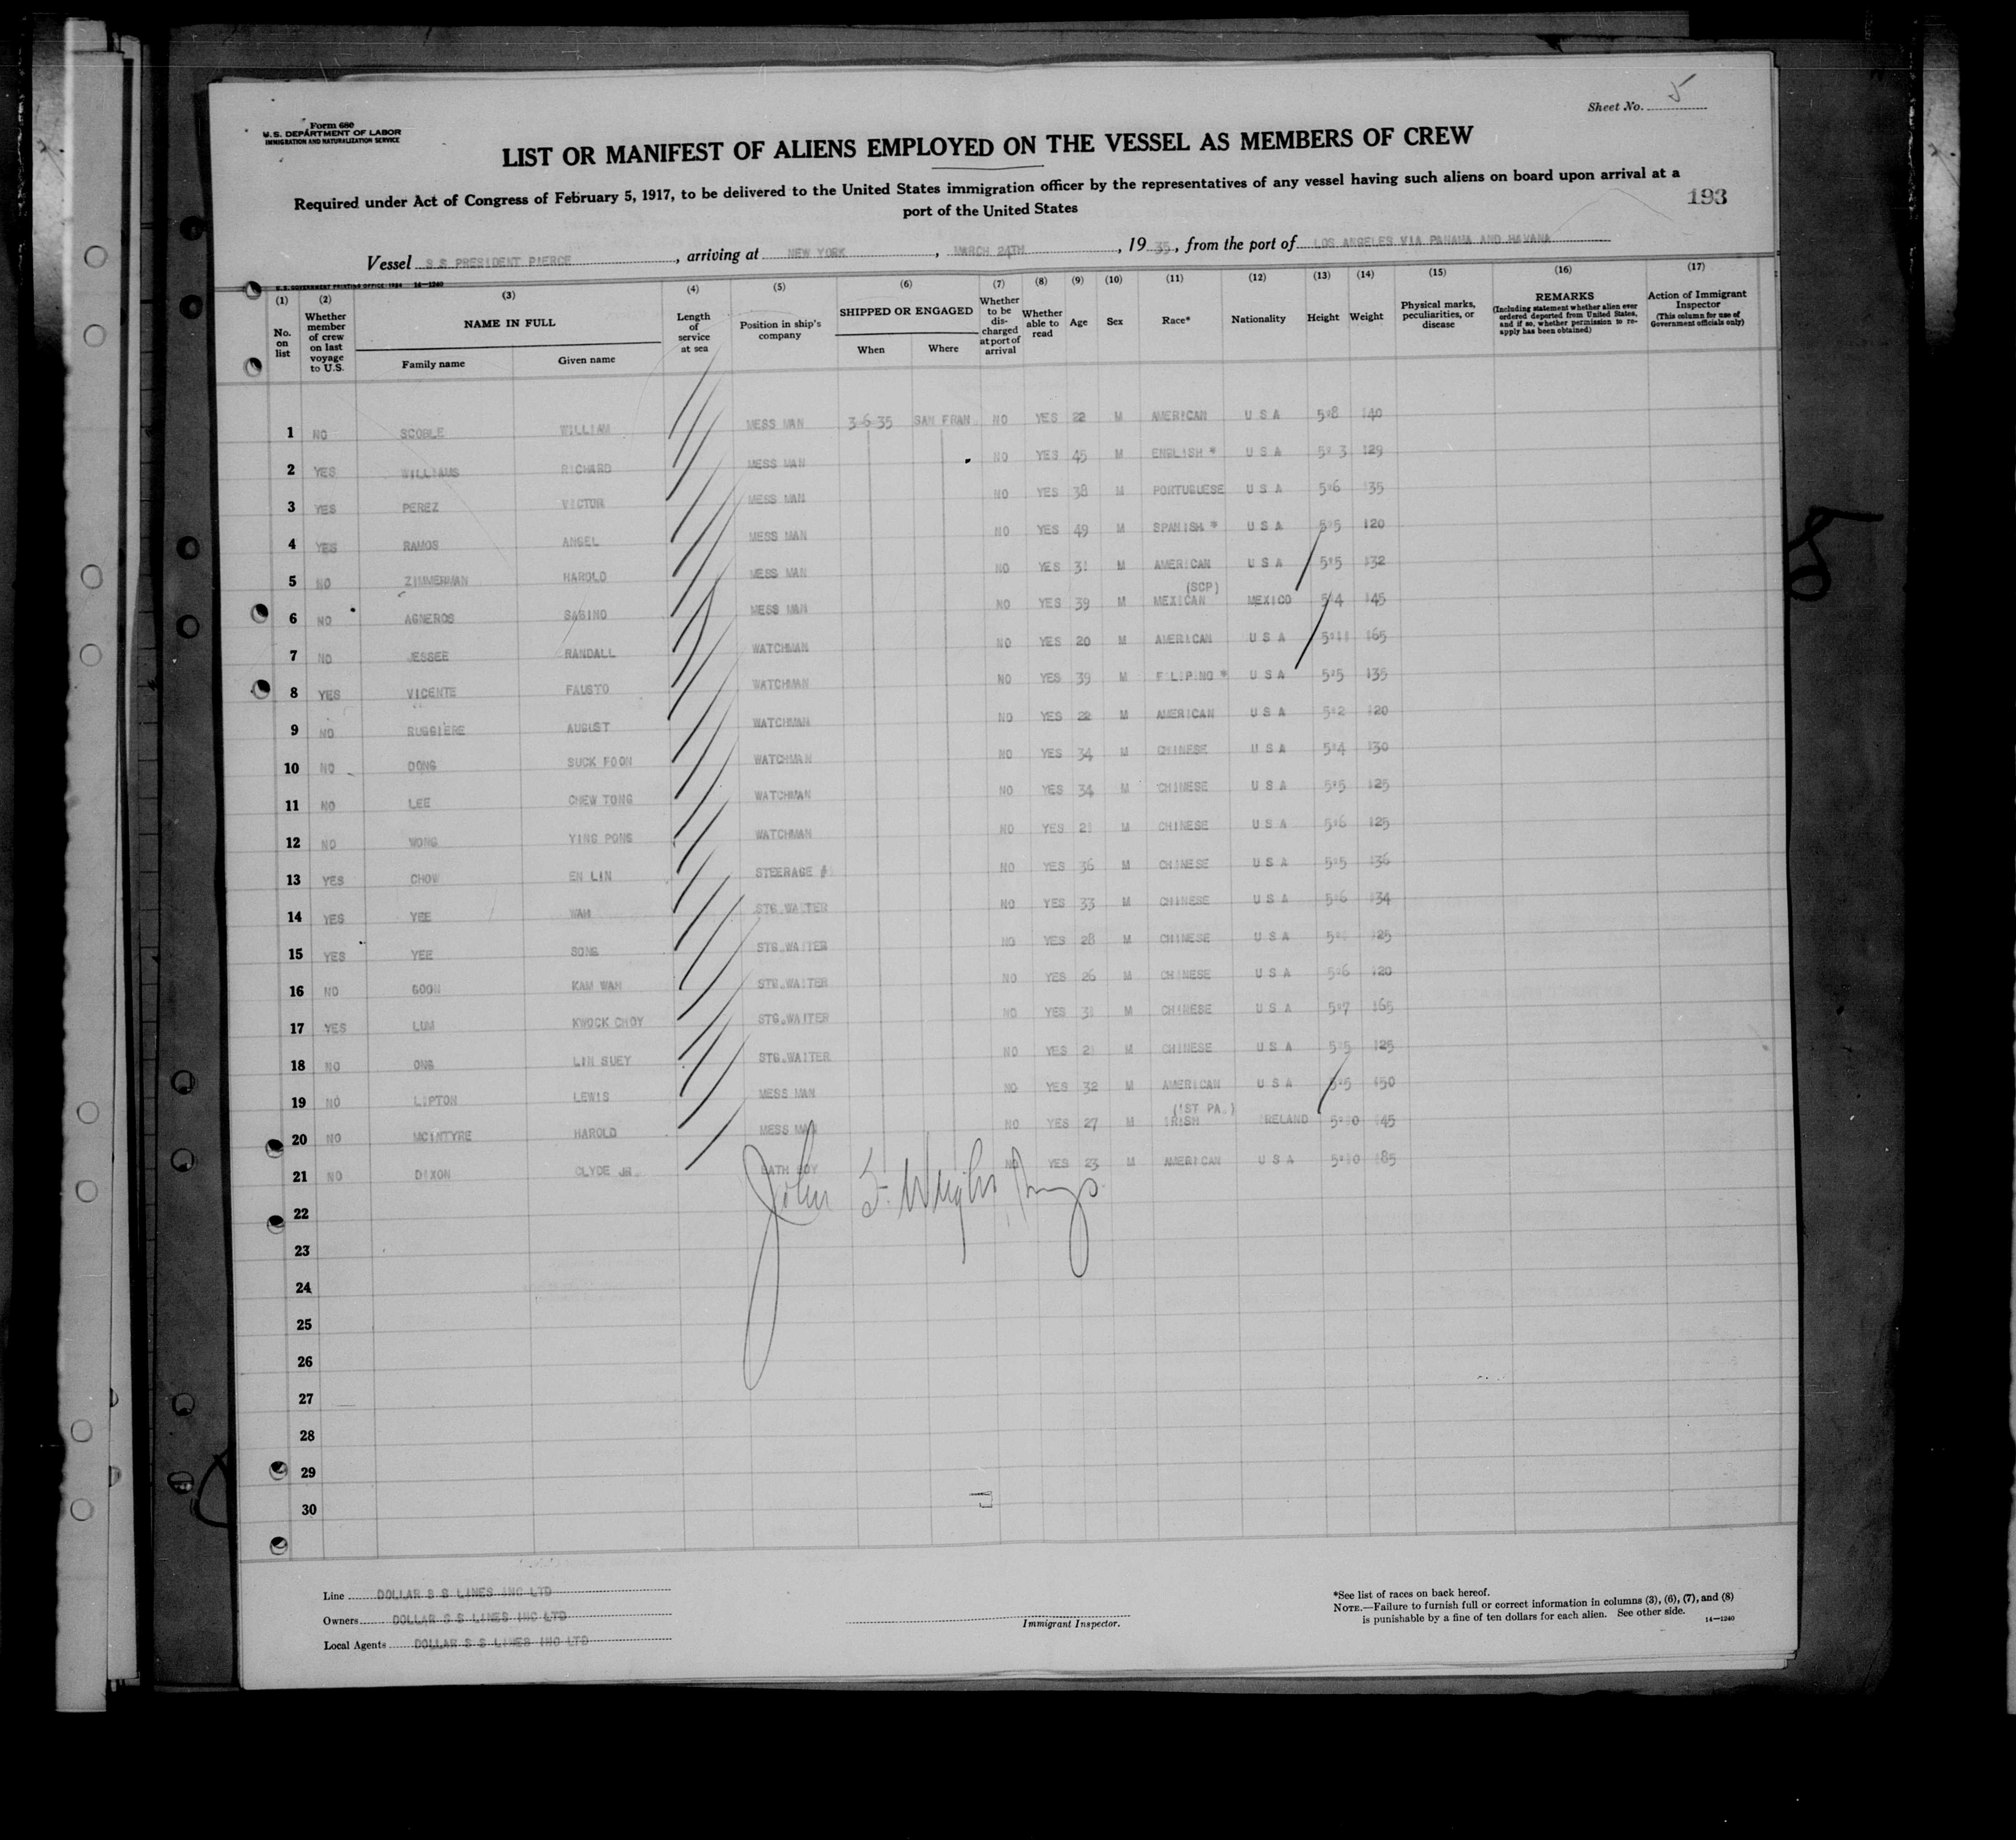 Sheet No. 5
Form 680
U.S. DEPARTMENT OF LABOR
IMMIGRATION AND NATURALIZATION SERVICE
LIST OR MANIFEST OF ALIENS EMPLOYED ON THE VESSEL AS MEMBERS OF CREW
Required under Act of Congress of February 5, 1917, to be delivered to the United States immigration officer by the representatives of any vessel having such aliens on board upon arrival at a
port of the United States
193
Vessel S S PRESIDENT PIERCE, arriving at NEW YORK, MARCH 24TH, 1935, from the port of LOS ANGELES VIA PANAMA AND HAVANA
U.S. GOVERNMENT PRINTING OFFICE: 1934 14—1240
(1) (2) (3) (4) (5) (6) (7) (8) (9) (10) (11) (12) (13) (14) (15) (16) (17)
No. on list
Whether member of crew on last voyage to U.S.
NAME IN FULL
Family name Given name
Length of service at sea
Position in ship's company
SHIPPED OR ENGAGED
When Where
Whether to be discharged at port of arrival
Whether able to read
Age Sex Race* Nationality Height Weight
Physical marks, peculiarities, or disease
REMARKS
(Including statement whether alien ever ordered deported from United States, and if so, whether permission to reapply has been obtained)
Action of Immigrant Inspector
(This column for use of Government officials only)
1 NO SCOBLE WILLIAM MESS MAN 3-6-35 SAN FRAN. NO YES 22 M AMERICAN U S A 5:8 140
2 YES WILLIAMS RICHARD MESS MAN NO YES 45 M ENGLISH * U S A 5: 3 129
3 YES PEREZ VICTOR MESS MAN NO YES 38 M PORTUGUESE U S A 5:6 135
4 YES RAMOS ANGEL MESS MAN NO YES 49 M SPANISH * U S A 5:5 120
5 NO ZIMMERMAN HAROLD MESS MAN NO YES 31 M AMERICAN U S A 5:5 132
(SCP)
6 NO AGNEROS SABINO MESS MAN NO YES 39 M MEXICAN MEXICO 5:4 145
7 NO JESSEE RANDALL WATCHMAN NO YES 20 M AMERICAN U S A 5:11 165
8 YES VICENTE FAUSTO WATCHMAN NO YES 39 M FILIPINO * U S A 5:5 135
9 NO SUGGIERE AUGUST WATCHMAN NO YES 22 M AMERICAN U S A 5:2 120
10 NO DONG SUCK FOON WATCHMAN NO YES 34 M CHINESE U S A 5:4 130
11 NO LEE CHEW TONG WATCHMAN NO YES 34 M CHINESE U S A 5:5 125
12 NO WONG YING PONG WATCHMAN NO YES 21 M CHINESE U S A 5:6 125
13 YES CHOW EN LIN STEERAGE #1 NO YES 36 M CHINESE U S A 5:5 136
14 YES YEE WAH STG.WAITER NO YES 33 M CHINESE U S A 5:6 134
15 YES YEE SONG STG.WAITER NO YES 28 M CHINESE U S A 125
16 NO GOON KAM WAH STG.WAITER NO YES 26 M CHINESE U S A 5:6 120
17 YES LUM KWOCK CHOY STG.WAITER NO YES 31 M CHINESE U S A 5:7 165
18 NO ONG LIN SUEY STG.WAITER NO YES 21 M CHINESE U S A 5:5 125
19 NO LIPTON LEWIS MESS MAN NO YES 32 M AMERICAN U S A 5:5 150
(1ST PA.)
20 NO MCINTYRE HAROLD MESS MAN NO YES 27 M IRISH IRELAND 5:10 145
21 NO DIXON CLYDE JR. BATH BOY NO YES 23 M AMERICAN U S A 5:10 185
22
23
24
25
26
27
28
29
30
Line DOLLAR S S LINES INC LTD
Owners DOLLAR S S LINES INC LTD
Local Agents DOLLAR S S LINES INC LTD
Immigrant Inspector.
*See list of races on back hereof.
NOTE.—Failure to furnish full or correct information in columns (3), (6), (7), and (8)
is punishable by a fine of ten dollars for each alien. See other side. 14—1240